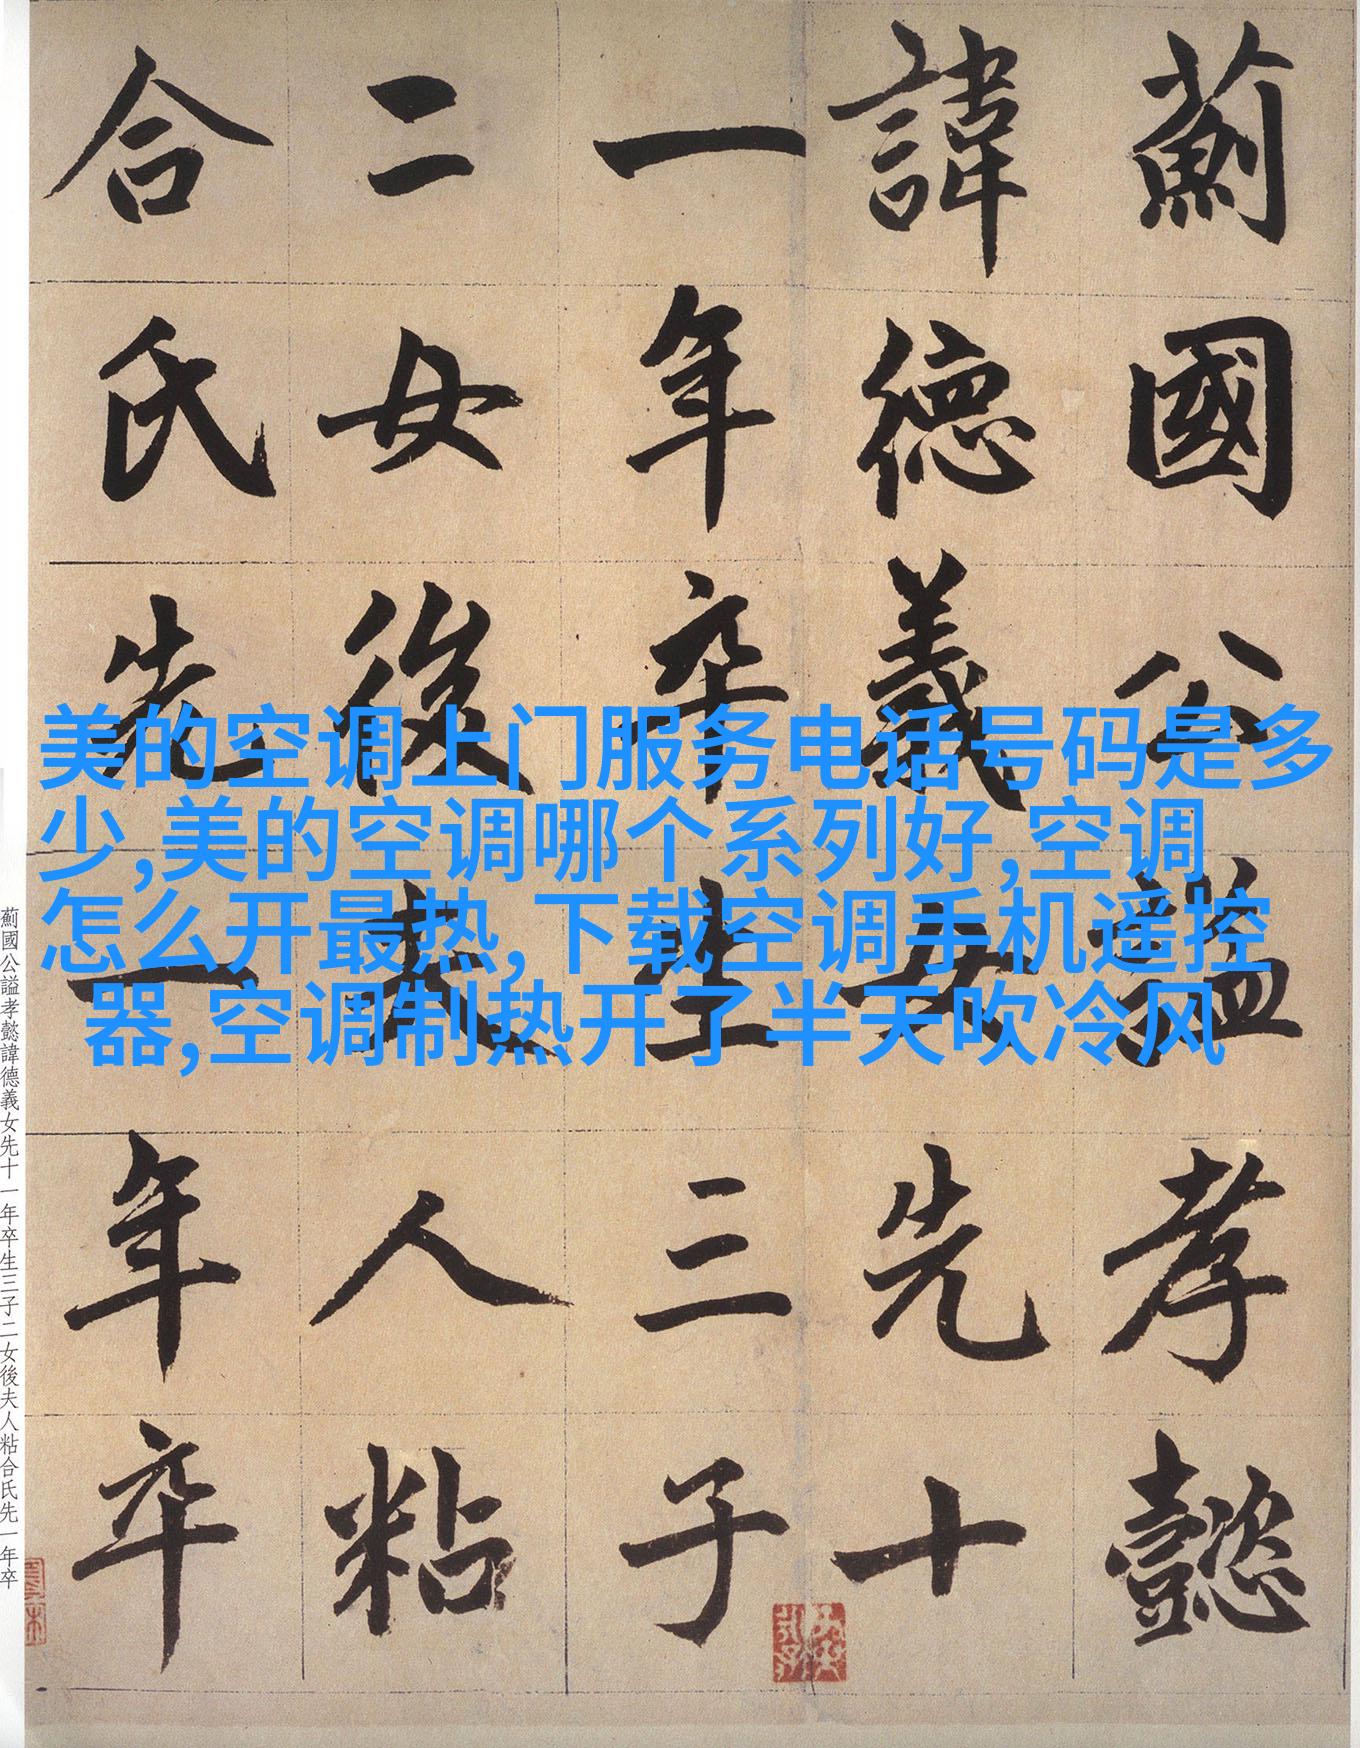 薊國公謚孝懿
諱德義女先十
一年卒生三子
二女後夫人粘
合氏先一年卒
美的空调上门服务电话号码是多
少,美的空调哪个系列好,空调
怎么开最热,下载空调手机遥控
器,空调制热开了半天吹冷风
薊國公謚孝懿諱德義女先十一年卒生三子二女後夫人粘合氏先一年卒